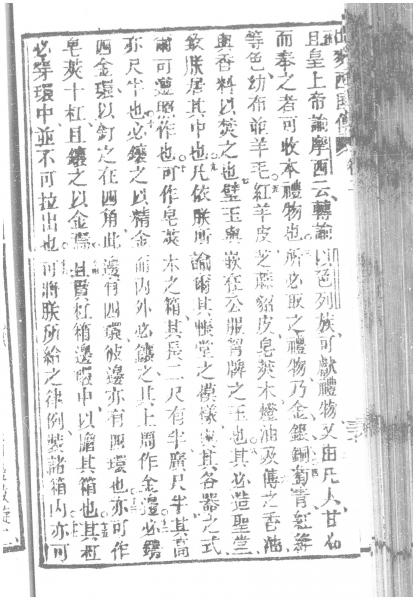 且皇上帝諭摩西云轉諭以色列族可獻禮物又由凡人甘心
而奉之者可收本禮物也所必取之禮物乃金銀銅葡青紅絳
等色幼布並羊毛紅羊皮芝蔴貂皮皂莢木燈油及傅之香油
與香料以焚之也璧玉與嵌在公服胷牌之玉也其必造聖堂
致朕居其中也凡依朕所諭爾其帳堂之模樣與其各器之式
爾可遵照作也可作皂莢木之箱其長二尺有半廣尺半其高
亦尺半也必鑲之以精金而內外必鑲之其上周作金邊必鑄
四金環以釘之在四角此邊有四環彼邊亦有四環也亦可作
皂莢十杠且鑲之以金焉且貫杠箱邊環中以擔其箱也其杠
必穿環中並不可拉出也可將朕所給之律例裝諸箱內亦可